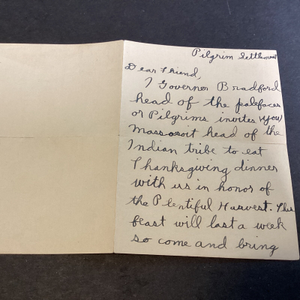 Pilgrim Settlement
Dear Friend,
I Governor Bradford
head of the palefaces
or Pilgrims invites (you)
Massosoit head of the
Indian tribe to eat
Thanksgiving dinner
with us in honor of
the Plentiful Harvest. This
feast will last a week
so come and bring